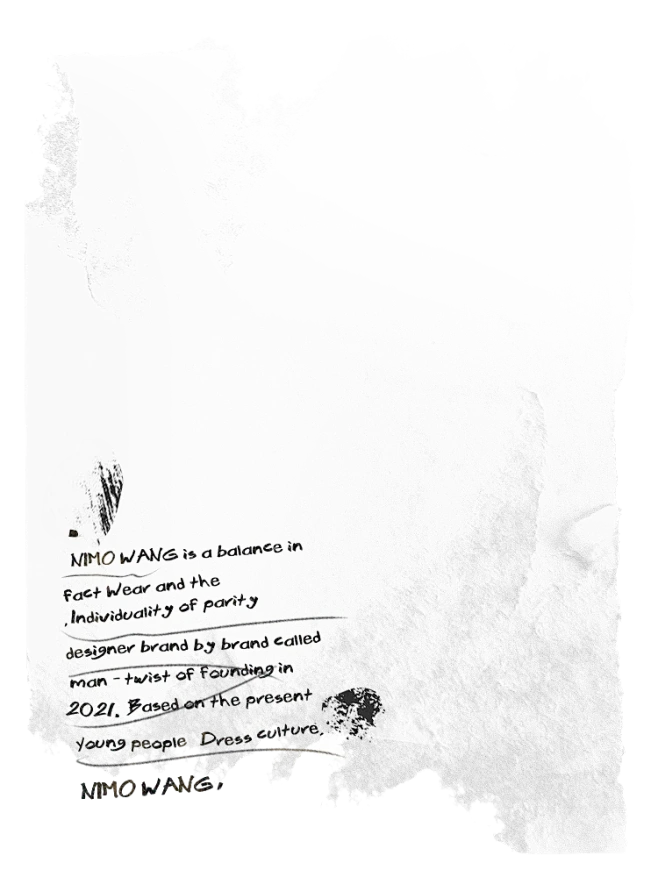 NIMO WANG is a balance in
fact Wear and the
,Individuality of parity
designer brand by brand called
man - twist of founding in
2021. Based on the present
young people Dress culture.
NIMO WANG,